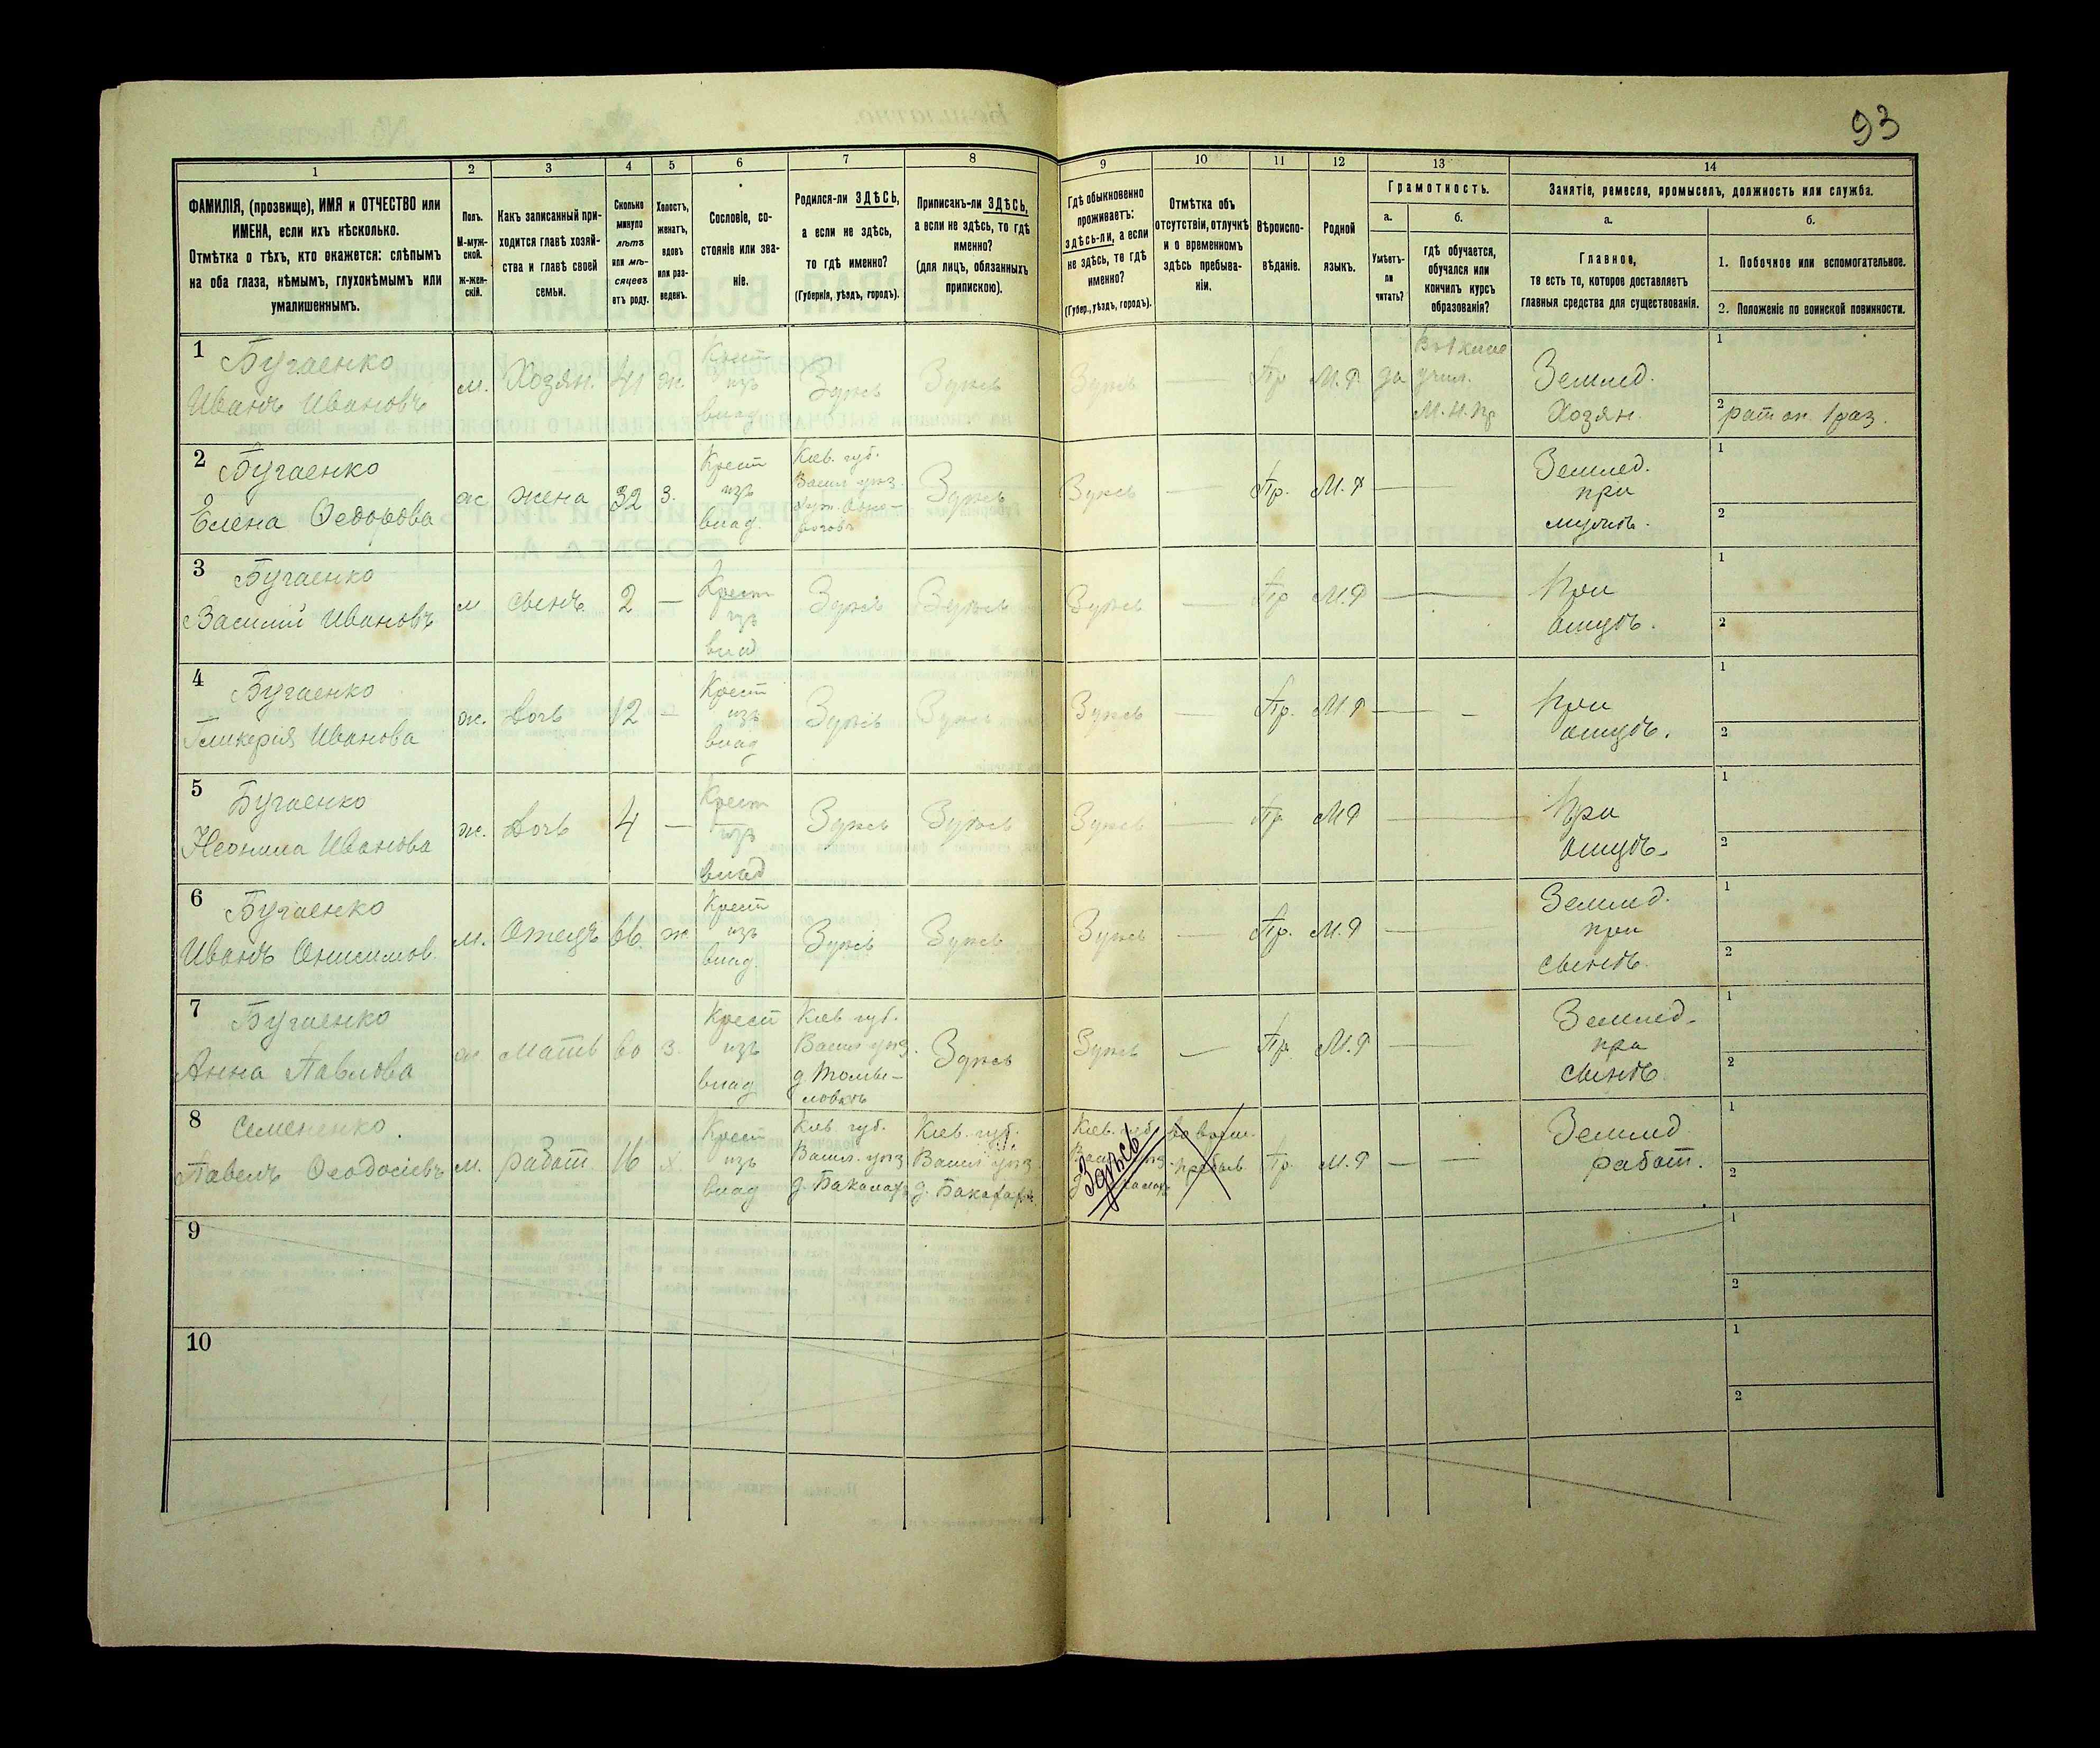 93
1
2
3
4
5
6
7
8
9
10
11
12
13
14
ФАМИЛІЯ, (прозвище), ИМЯ и ОТЧЕСТВО или
ИМЕНА, если ихъ нѣсколько.
Отмѣтка о тѣхъ, кто окажется: слѣпымъ
на оба глаза, нѣмымъ, глухонѣмымъ или
умалишеннымъ.
Полъ.
М-муж-
ской.
ж-жен-
скій.
Какъ записанный при-
ходится главѣ хозяй-
ства и главѣ своей
семьи.
Сколько
минуло
лѣтъ
или мѣ-
сяцевъ
отъ роду.
Холостъ,
женатъ,
вдовъ
или раз-
веденъ.
Сословіе, со-
стояніе или зва-
ніе.
Родился-ли ЗДѢСЬ,
а если не здѣсь,
то гдѣ именно?
(Губернія, уѣздъ, городъ).
Приписанъ-ли ЗДѢСЬ,
а если не здѣсь, то гдѣ
именно?
(для лицъ, обязанныхъ
припискою).
Гдѣ обыкновенно
проживаетъ:
здѣсь-ли, а если
не здѣсь, то гдѣ
именно?
(Губер., уѣздъ, городъ).
Отмѣтка объ
отсутствіи, отлучкѣ
и о временномъ
здѣсь пребыва-
ніи.
Вѣроиспо-
вѣданіе.
Родной
языкъ.
Грамотность.
а.
б.
Умѣетъ-
ли
читать?
гдѣ обучается,
обучался или
кончилъ курсъ
образованія?
Занятіе, ремесло, промыселъ, должность или служба.
а.
б.
Главное,
то есть то, которое доставляетъ
главныя средства для существованія.
1. Побочное или вспомогательное.
2. Положеніе по воинской повинности.
1
Бугаенко
Иванъ Ивановъ
м.
Хозян.
41
ж.
Крест
изъ
влад
Здѣсь
Здѣсь
Здѣсь
—
Пр
М.Р.
да
учил.
М.Н.Пр
Землед.
Хозян.
1
2
рат оп. 1 раз.
2
Бугаенко
Елена Ѳедорова
ж
жена
32
з.
Крест
изъ
влад.
Кіев. губ.
Васил уѣз.
Здѣсь
Здѣсь
—
Пр.
М.Р
—
Землед.
при
мужѣ.
1
2
3
Бугаенко
Василій Ивановъ
м
сынъ
2
—
Крест
изъ
влад
Здѣсь
Здѣсь
Здѣсь
—
Пр
М.Р
—
При
отцѣ.
1
2
4
Бугаенко
Гликерія Иванова
ж.
дочь
12
—
Крест
изъ
влад
Здѣсь
Здѣсь
Здѣсь
—
Пр.
М Р
—
При
отцѣ.
1
2
5
Бугаенко
Неонила Иванова
ж.
дочь
4
—
Крест
изъ
влад
Здѣсь
Здѣсь
Здѣсь
—
Пр
М Р
—
При
отцѣ.
1
2
6
Бугаенко
Иванъ Онисимов.
м.
Отецъ
66
ж
Крест
изъ
влад.
Здѣсь
Здѣсь
Здѣсь
—
Пр.
М.Р
—
Землед.
при
сынѣ.
1
2
7
Бугаенко
Анна Павлова
ж
мать
60
з.
Крест
изъ
влад
Кіев губ.
Васил уѣз.
Здѣсь
Здѣсь
—
Пр.
М.Р
—
Землед.
при
сынѣ
1
2
8
Семененко.
Павелъ Ѳеодосіевъ
м.
работ.
16
х
Крест
изъ
влад
Кіев. губ.
Васил. уѣз
Кіев. губ.
Васил уѣз.
Кіев. губ
Здѣсь
Пр.
М.Р
—
—
Землед
работ.
1
2
9
1
2
10
1
2